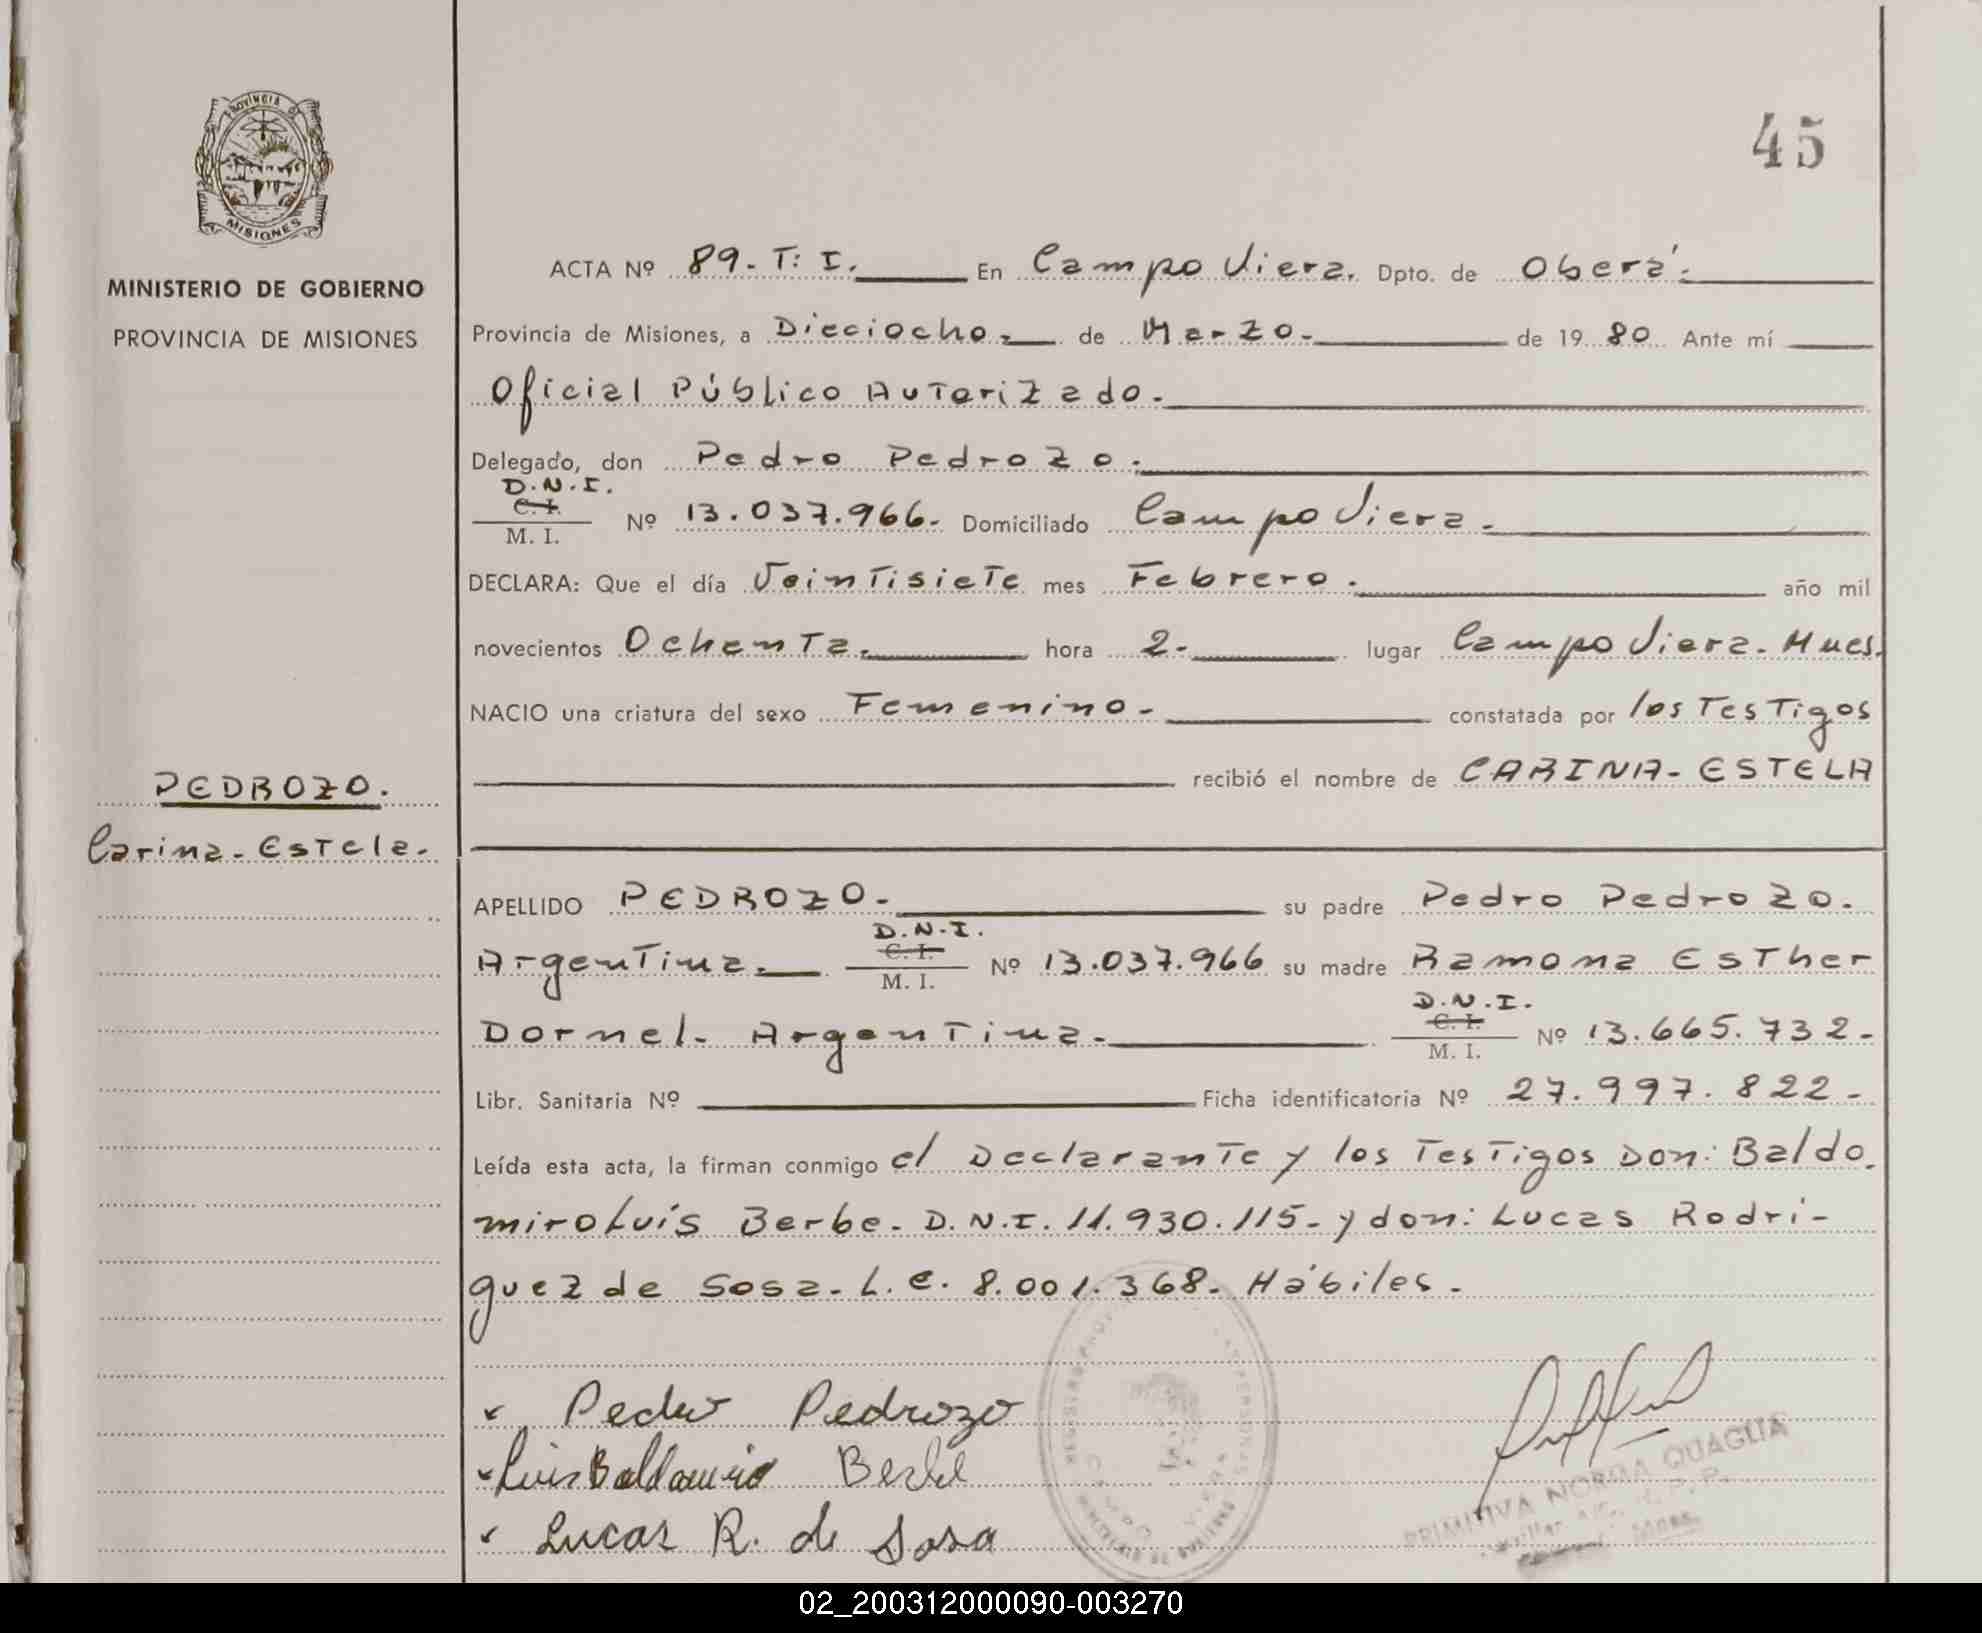 45
PROVINCIA DE
MISIONES
MINISTERIO DE GOBIERNO
PROVINCIA DE MISIONES
ACTA Nº 89. T: I. En Campo Viera. Dpto. de Oberá.
Provincia de Misiones, a Dieciocho. de Marzo. de 19 80 Ante mí
Oficial Público Autorizado.
Delegado, don Pedro Pedrozo.
D.N.I.
C. I.
M. I. Nº 13.037.966. Domiciliado Campo Viera.
DECLARA: Que el día Veintisiete mes Febrero. año mil
novecientos Ochenta. hora 2. lugar Campo Viera. Mnes.
NACIO una criatura del sexo Femenino. constatada por los Testigos
recibió el nombre de CARINA-ESTELA
PEDROZO.
Carina-Estela.
APELLIDO PEDROZO. su padre Pedro Pedrozo.
D.N.I.
Argentina. C. I. Nº 13.037.966 su madre Ramona Esther
M. I.
D.N.I.
Dornel. Argentina. C. I. Nº 13.665.732.
M. I.
Libr. Sanitaria Nº Ficha identificatoria Nº 27.997.822.
Leída esta acta, la firman conmigo el Declarante y los Testigos Don: Baldo.
miro Luís Berbe. D.N.I. 11.930.115. y don: Lucas Rodri-
guez de Sosa. L.E. 8.001.368. Hábiles.
Pedro Pedrozo
Luis Baldomiro Berbé
Lucas R. de Sosa
PRIMITIVA NORMA QUAGLIA
02_200312000090-003270